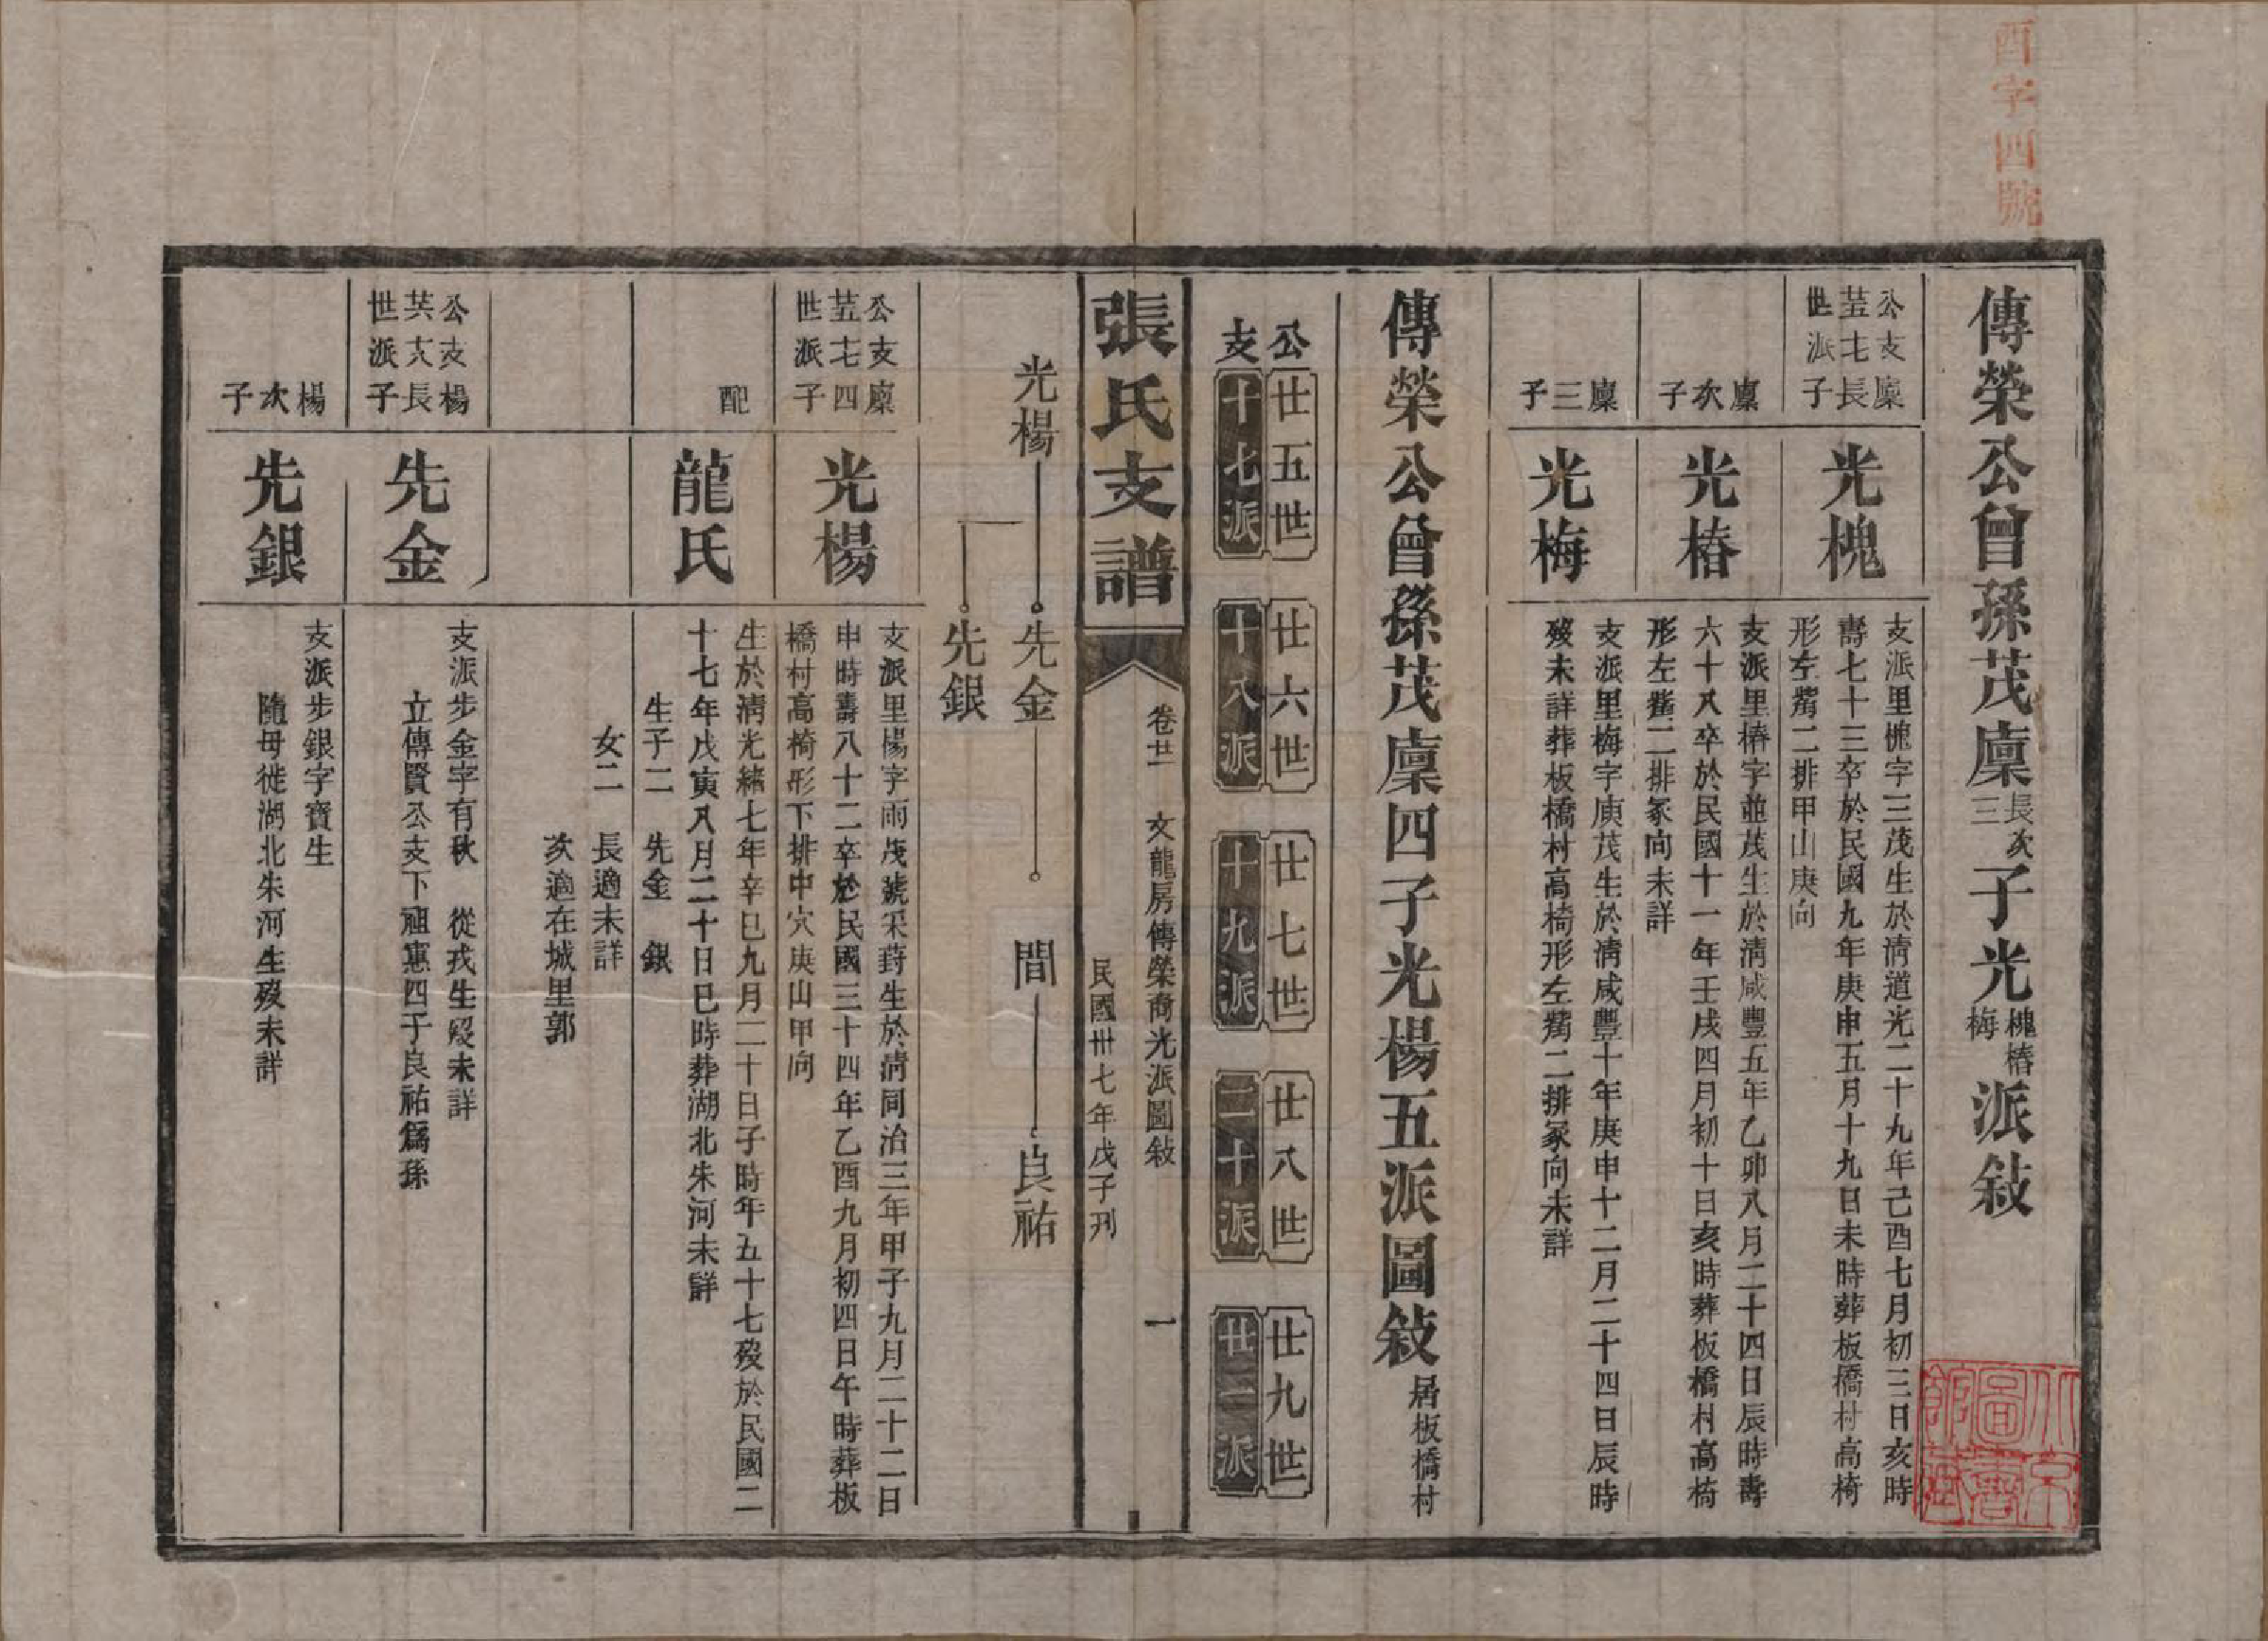 西字四號
傳榮公曾孫茂廩長次三子光槐椿梅派敍
公支廩
廿五七長
世派子
光槐
支派里槐字三茂生於清道光二十九年己酉七月初三日亥時
壽七十三卒於民國九年庚申五月十九日未時葬板橋村高椅
形左觜二排甲山庚向
廩次子
光椿
支派里椿字並茂生於清咸豐五年乙卯八月二十四日辰時壽
六十八卒於民國十一年壬戌四月初十日亥時葬板橋村高椅
形左觜二排冢向未詳
廩三子
光梅
支派里梅字庾茂生於清咸豐十年庚申十二月二十四日辰時
歿未詳葬板橋村高椅形左觜二排冢向未詳
傳榮公曾孫茂廩四子光楊五派圖敍 居板橋村
公 廿五世 廿六世 廿七世 廿八世 廿九世
支 十七派 十八派 十九派 二十派 廿一派
張氏支譜
卷廿二 文龍房傳榮裔光派圖敍 一
民國卅七年戊子刊
光楊 先金 間 良祐
先銀
公支廩
廿五七四
世派子
光楊
支派里楊字雨茂號采葑生於清同治三年甲子九月二十二日
申時壽八十二卒於民國三十四年乙酉九月初四日午時葬板
橋村高椅形下排中穴庚山甲向
配
龍氏
生於清光緒七年辛巳九月二十日子時年五十七歿於民國二
十七年戊寅八月二十日巳時葬湖北朱河未詳
生子二 先金 銀
女二 長適未詳
次適在城里郭
公支楊
廿六八長
世派子
先金
支派步金字有秋 從戎生歿未詳
立傳賢公支下祖惠四子良祐爲孫
楊次子
先銀
支派步銀字寶生
隨母徙湖北朱河生歿未詳
北京圖書館藏